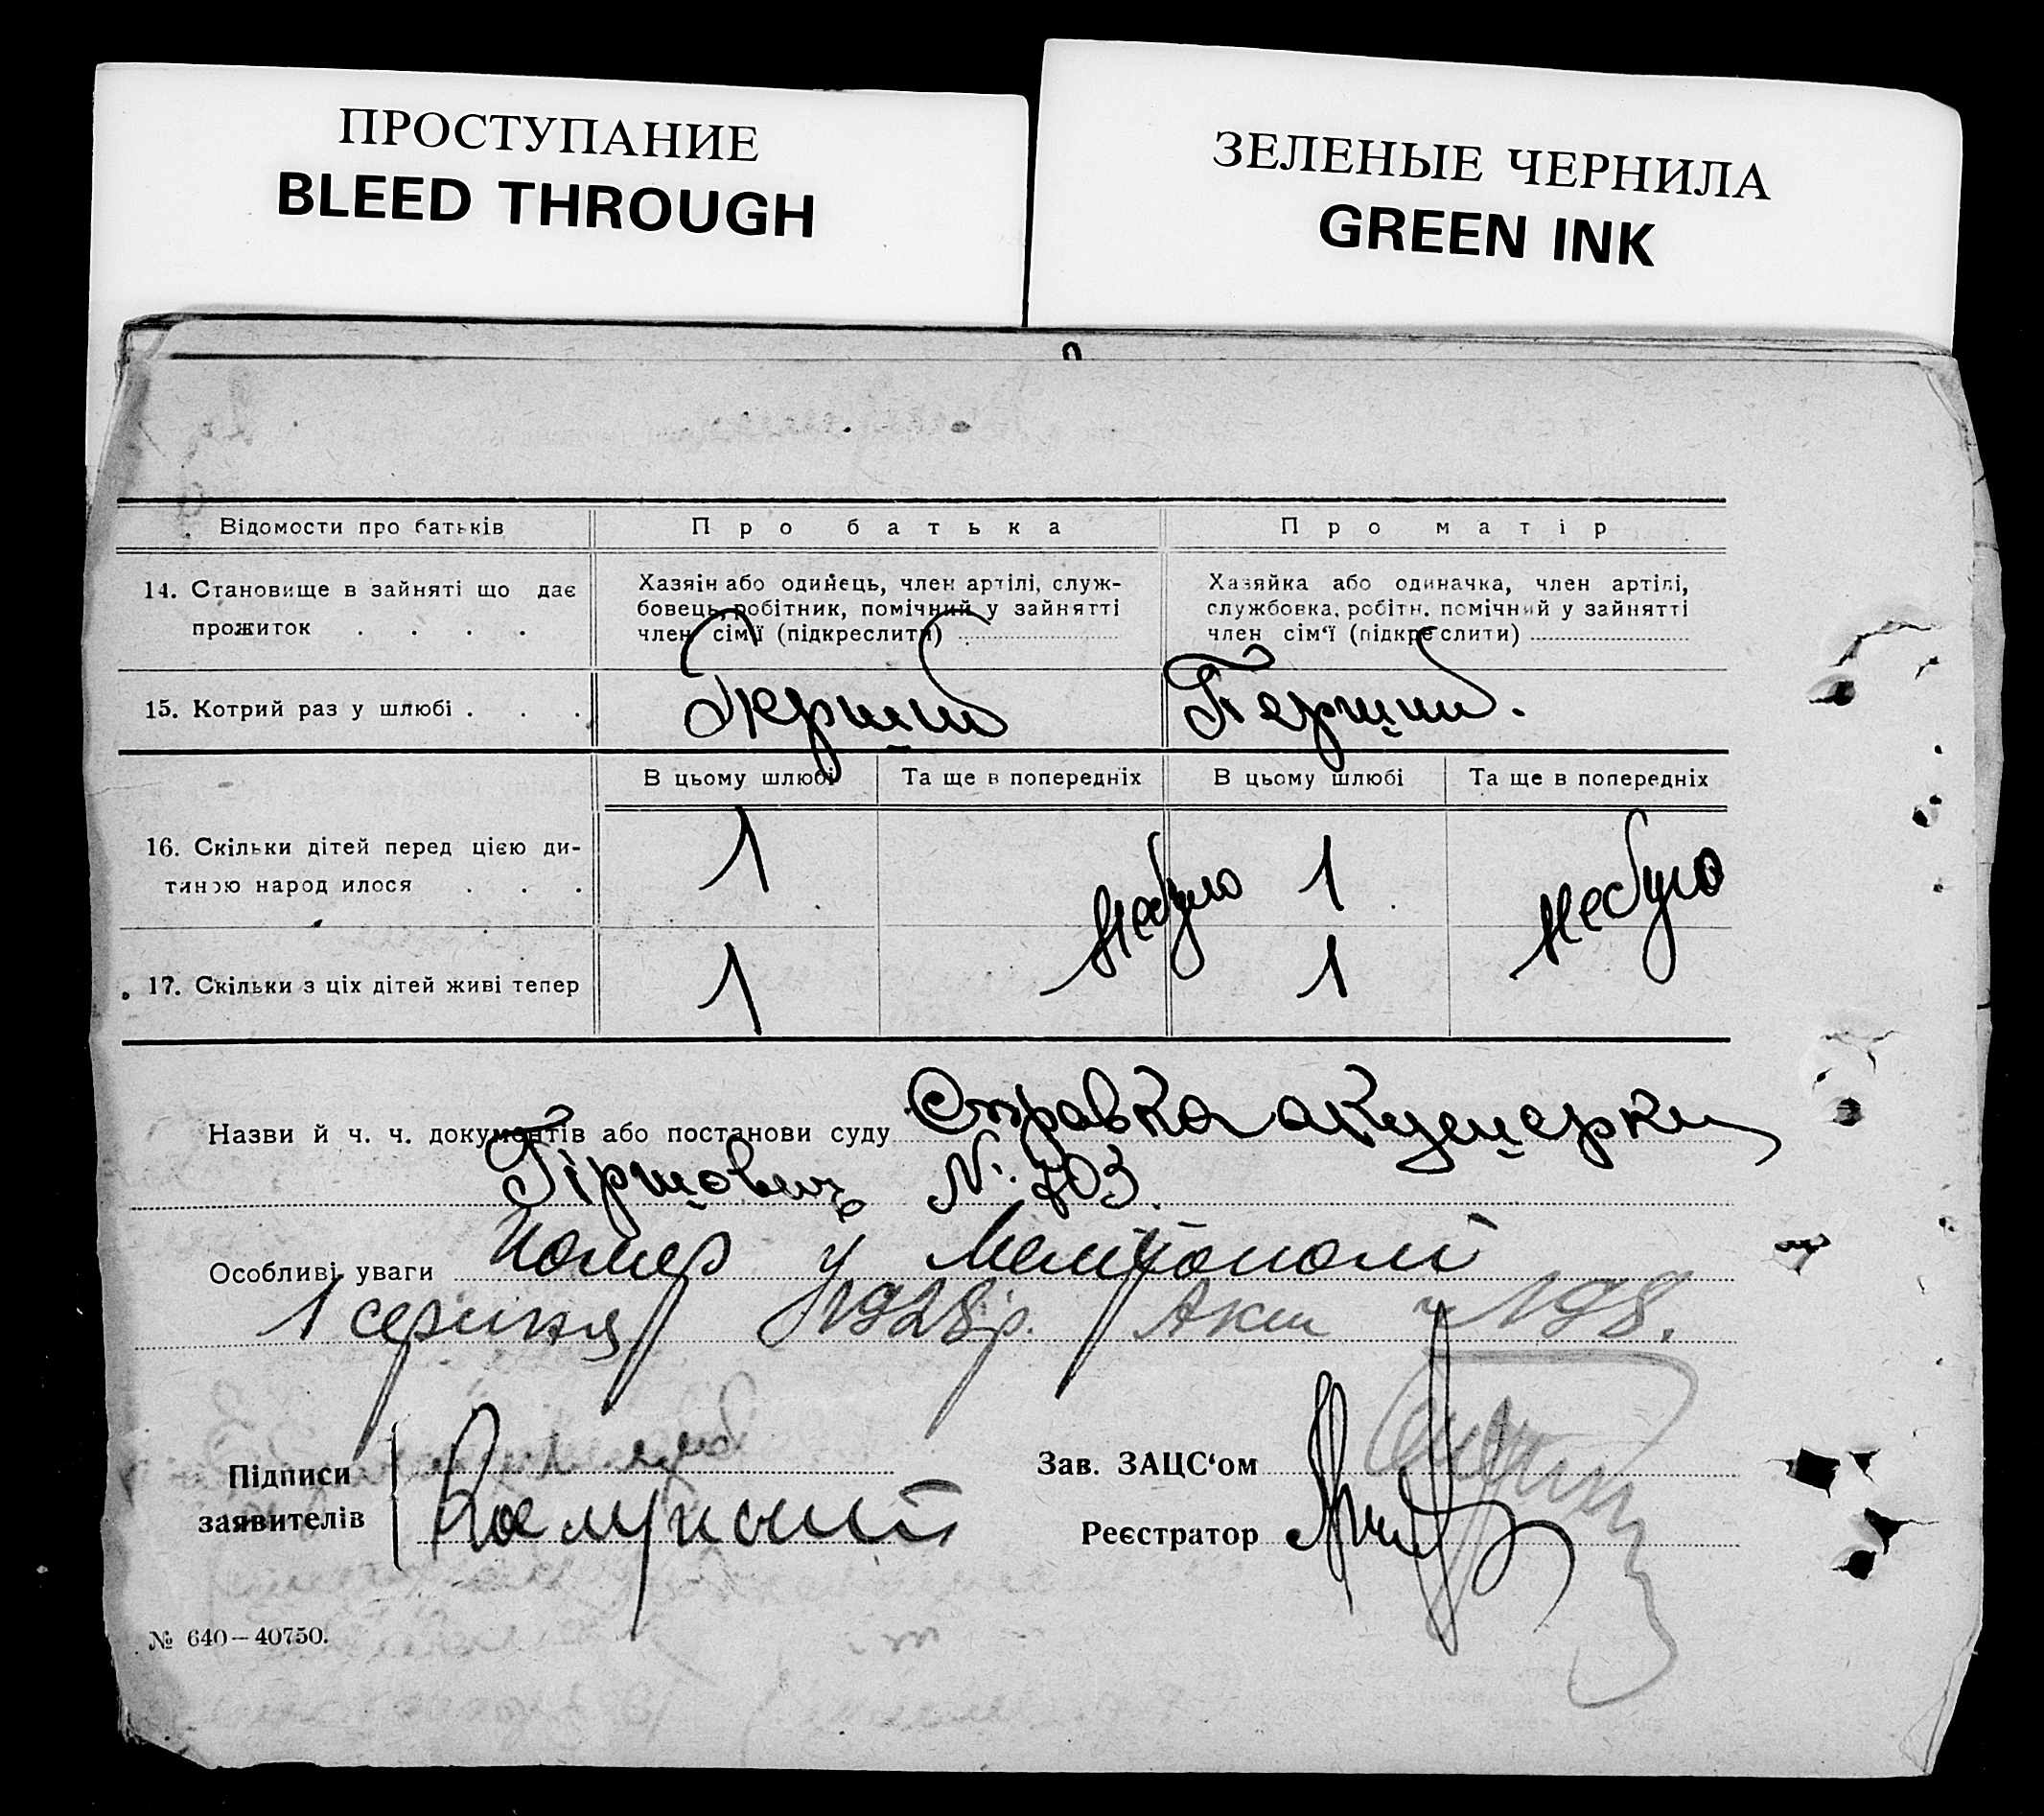 ПРОСТУПАНИЕ
BLEED THROUGH
ЗЕЛЕНЫЕ ЧЕРНИЛА
GREEN INK
Відомости про батьків
Про батька
Про матір
14. Становище в зайняті що дає
прожиток . . . .
Хазяін або одинець, член артілі, служ-
бовець, робітник, помічний у зайнятті
член сім'ї (підкреслити)
Хазяйка або одиначка, член артілі,
службовка, робітн. помічний у зайнятті
член сім'ї (підкреслити)
15. Котрий раз у шлюбі . . .
Перший
Перший.
В цьому шлюбі
Та ще в попередніх
В цьому шлюбі
Та ще в попередніх
16. Скільки дітей перед цією ди-
тиною народилося . . .
1
Небуло
1
Небуло
17. Скільки з ціх дітей живі тепер
1
1
Назви й ч. ч. документів або постанови суду Справка акушерки
Гіршович № 703.
Особливі уваги Помер у Мелітополі
1 серпня 1928 р. Акт ч 198.
Підписи
заявителів
Зав. ЗАЦС'ом
Реєстратор
№ 640—40750.